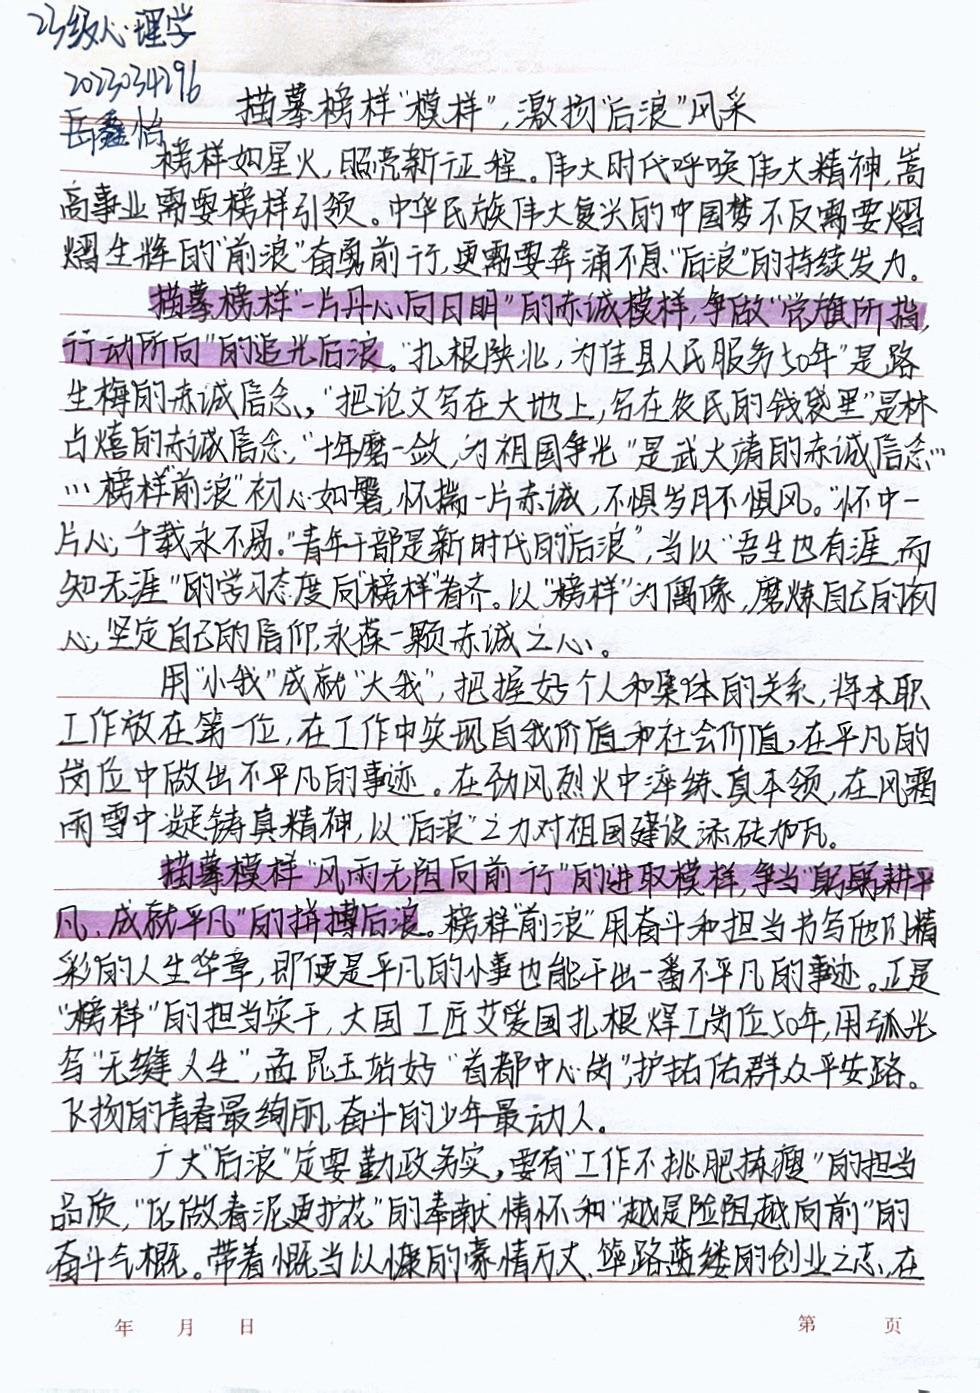 23级心理学
2023034296
岳鑫怡
描摹榜样“模样”,激扬“后浪”风采
榜样如星火,照亮新征程。伟大时代呼唤伟大精神,嵩
高事业需要榜样引领。中华民族伟大复兴的中国梦不仅需要熠
熠生辉的“前浪”奋勇前行,更需要奔涌不息“后浪”的持续发力。
描摹榜样“一片丹心向日明”的赤诚模样,争做“党旗所指,
行动所向”的追光后浪。“扎根陕北,为佳县人民服务50年”是路
生梅的赤诚信念,“把论文写在大地上,写在农民的钱袋里”是林
占熺的赤诚信念,“十年磨一敛,为祖国争光”是武大靖的赤诚信念…
…榜样“前浪”初心如磐,怀揣一片赤诚,不惧岁月不惧风。“怀中一
片心,千载永不易。”青年干部是新时代的“后浪”,当以“吾生也有涯,而
知无涯”的学习态度向“榜样”看齐。以“榜样”为偶像,磨炼自己的初
心,坚定自己的信仰,永葆一颗赤诚之心。
用“小我”成就“大我”,把握好个人和集体的关系,将本职
工作放在第一位,在工作中实现自我价值和社会价值,在平凡的
岗位中做出不平凡的事迹。在劲风烈火中淬练真本领,在风霜
雨雪中凝铸真精神,以“后浪”之力对祖国建设添砖加瓦。
描摹模样“风雨无阻向前行”的进取模样,争当“躬身耕平
凡,成就平凡”的拼搏后浪。榜样“前浪”用奋斗和担当书写他们精
彩的人生华章,即便是平凡的小事也能干出一番不平凡的事迹。正是
“榜样”的担当实干,大国工匠艾爱国扎根焊工岗位50年,用弧光
写“无缝人生”,孟昆玉站好“首都中心岗”,护佑群众平安路。
飞扬的青春最绚丽,奋斗的少年最动人。
广大“后浪”定要勤政务实,要有“工作不挑肥拣瘦”的担当
品质,“化做春泥更护花”的奉献情怀和“越是险阻越向前”的
奋斗气概。带着慨当以慷的豪情万丈、筚路蓝缕的创业之志,在
年 月 日
第 页